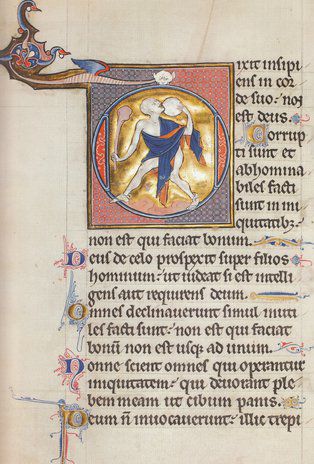 Dixit insipi
ens in cor
de suo: non
est deus.
Corrup
ti sunt et
abhomina
biles facti
sunt in in
iquitatibz
non est qui faciat bonum.
Deus de celo prospexit super filios
hominum: ut uideat si est intelli
gens aut requirens deum.
Omnes declinauerunt simul inuti
les facti sunt: non est qui faciat
bonū non est usque ad unum.
Nonne scient omnes qui operantur
iniquitatem: qui deuorant ple
bem meam ut cibum panis.
Deum n̄ inuocauerunt: illic trepi